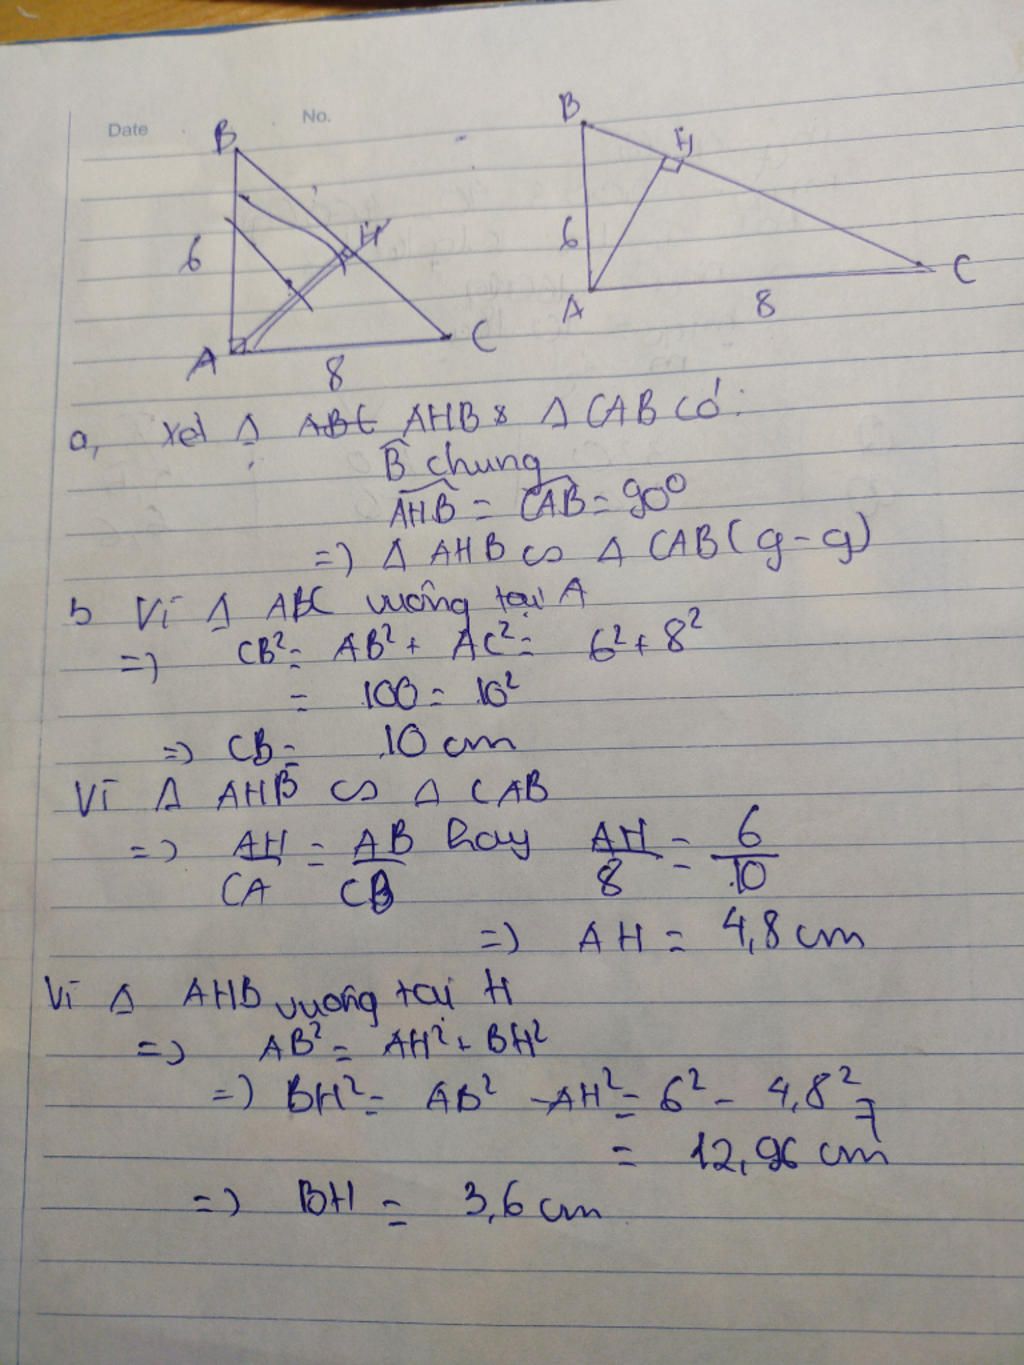 Date
No.
B
H
6
A
8
C
B
H
6
A
8
C
a, Xét Δ ABC AHB & Δ CAB có:
B̂ chung
AHB = CAB = 90⁰
=> Δ AHB ∽ Δ CAB (g-g)
b Vì Δ ABC vuông tại A
=> CB² = AB² + AC² = 6² + 8²
= 100 = 10²
=> CB = 10 cm
Vì Δ AHB ∽ Δ CAB
=> AH/CA = AB/CB hay AH/8 = 6/10
=> AH = 4,8 cm
Vì Δ AHB vuông tại H
=> AB² = AH² + BH²
=> BH² = AB² - AH² = 6² - 4,8²
= 12,96 cm
=> BH = 3,6 cm